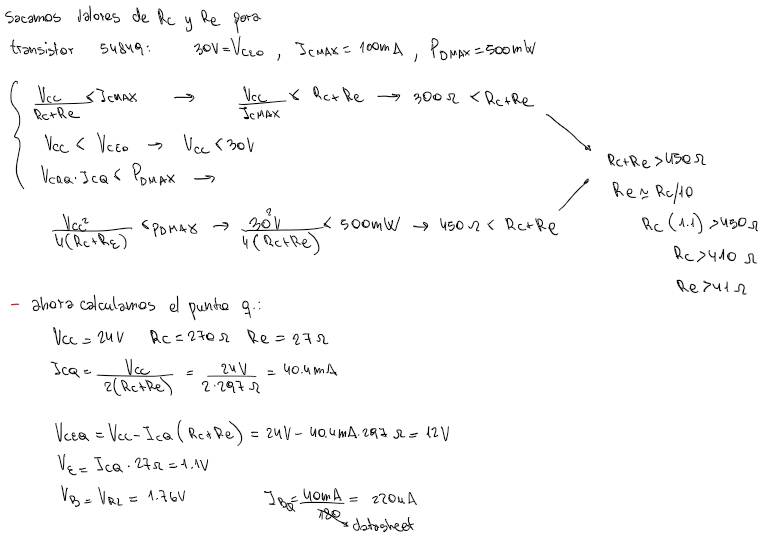 Sacamos valores de Rc y Re para
transistor 54849: 30V = VCEO , ICMAX = 100mA , PDMAX = 500mW
Vcc / Rc+Re < ICMAX → Vcc / ICMAX < Rc+Re → 300 Ω < Rc+Re
Vcc < VCEO → Vcc < 30V
VCEQ · ICQ < PDMAX →
Vcc² / 4(Rc+RE) < PDMAX → 30²V / 4(Rc+Re) < 500mW → 450 Ω < Rc+Re
Rc+Re > 450 Ω
Re ≃ Rc/10
Rc (1.1) > 450 Ω
Rc > 410 Ω
Re > 41 Ω
- ahora calculamos el punto q.:
Vcc = 24V Rc = 270 Ω Re = 27 Ω
ICQ = Vcc / 2(Rc+Re) = 24V / 2·297 Ω = 40.4mA
VCEQ = Vcc - ICQ (Rc+Re) = 24V - 40.4mA·297 Ω = 12V
VE = ICQ · 27 Ω = 1.1V
VB = VR2 = 1.76V IBQ = 40mA / 180 = 220uA
datasheet